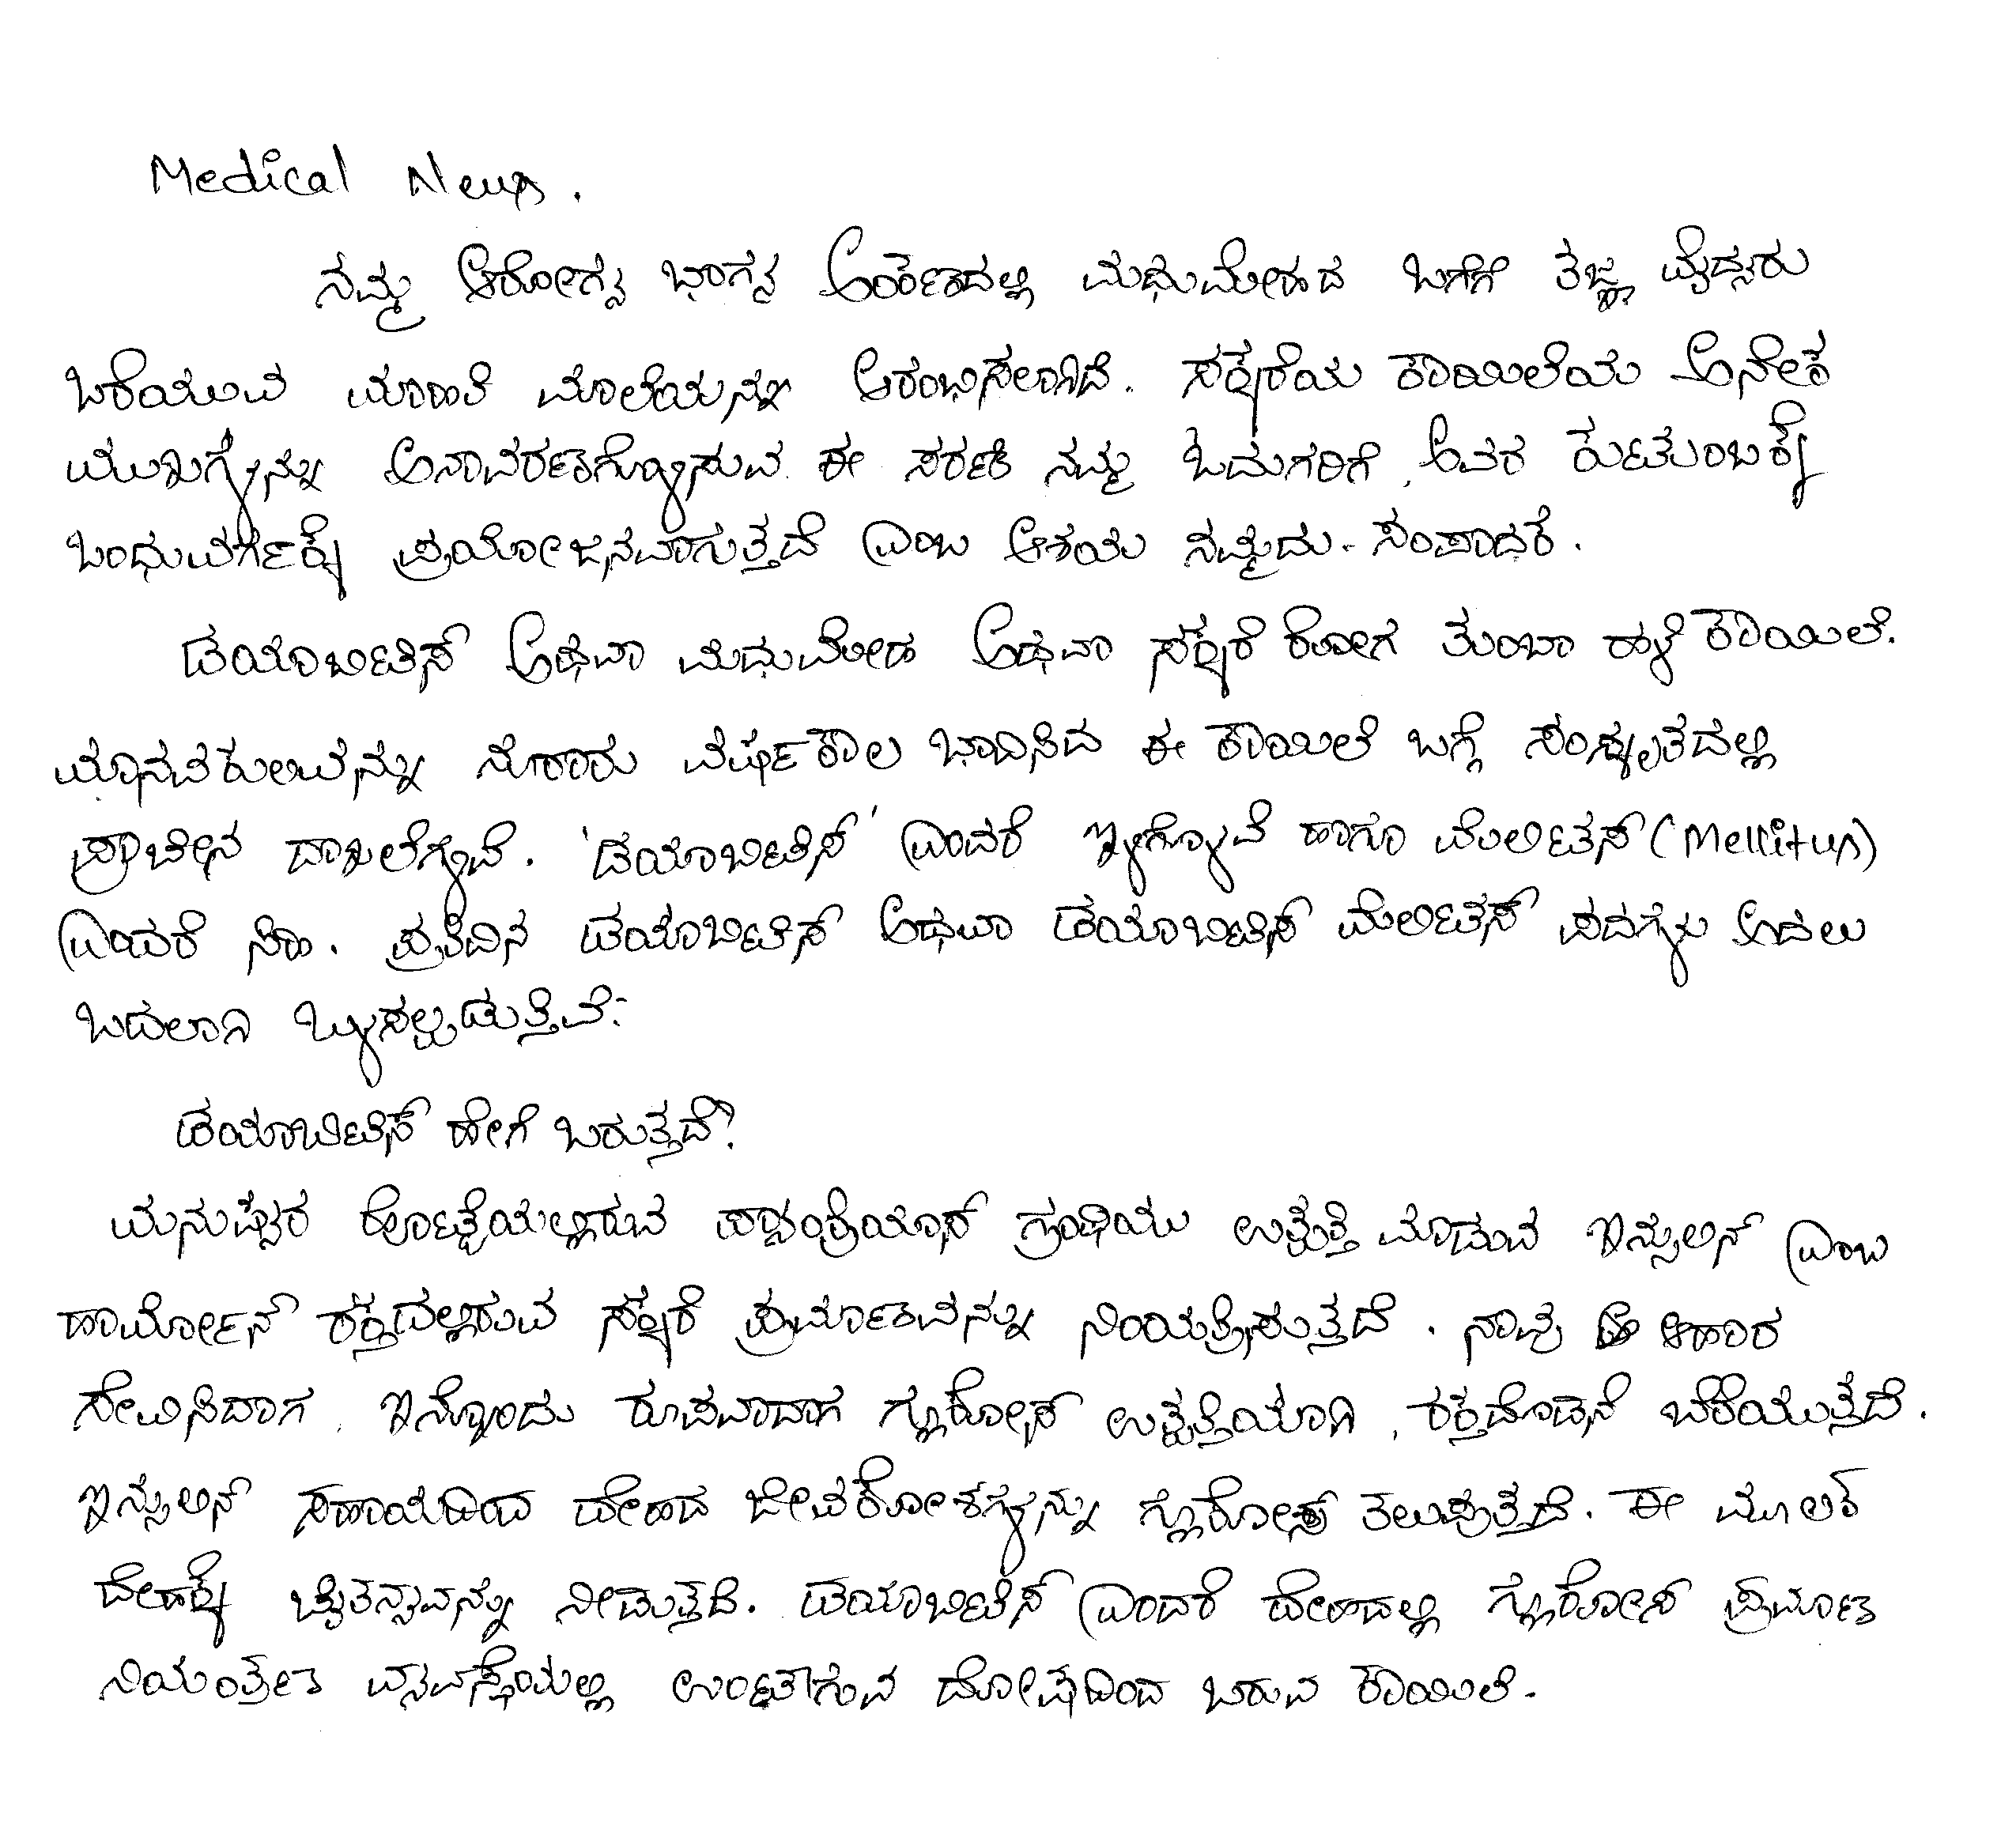 Medical News.
ನಮ್ಮ ಆರೋಗ್ಯ ಭಾಗ್ಯ ಅಂಕಣದಲ್ಲಿ ಮಧುಮೇಹದ ಬಗೆಗೆ ತಜ್ಞ ವೈದ್ಯರು
ಬರೆಯುವ ಮಾಹಿತಿ ಮಾಲೆಯನ್ನು ಆರಂಭಿಸಲಾಗಿದೆ. ಸಕ್ಕರೆಯ ಕಾಯಿಲೆಯ ಅನೇಕ
ಮುಖಗಳನ್ನು ಅನಾವರಣಗೊಳಿಸುವ ಈ ಸರಣಿ ನಮ್ಮ ಓದುಗರಿಗೆ, ಅವರ ಕುಟುಂಬಕ್ಕೆ
ಬಂಧುವರ್ಗಕ್ಕೆ ಪ್ರಯೋಜನವಾಗುತ್ತದೆ ಎಂಬ ಆಶಯ ನಮ್ಮದು - ಸಂಪಾದಕ.
ಡಯಾಬಿಟಿಸ್ ಅಥವಾ ಮಧುಮೇಹ ಅಥವಾ ಸಕ್ಕರೆ ರೋಗ ತುಂಬಾ ಹಳೆ ಕಾಯಿಲೆ.
ಮಾನವಕುಲವನ್ನು ನೂರಾರು ವರ್ಷಕಾಲ ಭಾದಿಸಿದ ಈ ಕಾಯಿಲೆ ಬಗ್ಗೆ ಸಂಸ್ಕೃತದಲ್ಲಿ
ಪ್ರಾಚೀನ ದಾಖಲೆಗಳಿವೆ. 'ಡಯಾಬಿಟಿಸ್' ಎಂದರೆ ಇಳಿಗೊಳವೆ ಹಾಗೂ ಮೆಲಿಟಸ್ (Mellitus)
ಎಂದರೆ ಸಿಹಿ. ಪ್ರತಿದಿನ ಡಯಾಬಿಟಿಸ್ ಅಥವಾ ಡಯಾಬಿಟಿಸ್ ಮೆಲಿಟಸ್ ಪದಗಳು ಅದಲು
ಬದಲಾಗಿ ಬಳಸಲ್ಪಡುತ್ತಿವೆ:
ಡಯಾಬಿಟಿಸ್ ಹೇಗೆ ಬರುತ್ತದೆ?
ಮನುಷ್ಯರ ಹೊಟ್ಟೆಯಲ್ಲಿರುವ ಪ್ಯಾಂಕ್ರಿಯಾಸ್ ಗ್ರಂಥಿಯು ಉತ್ಪತ್ತಿ ಮಾಡುವ ಇನ್ಸುಲಿನ್ ಎಂಬ
ಹಾರ್ಮೋನ್ ರಕ್ತದಲ್ಲಿರುವ ಸಕ್ಕರೆ ಪ್ರಮಾಣವನ್ನು ನಿಯಂತ್ರಿಸುತ್ತದೆ. ನಾವು ಆಹಾರ
ಸೇವಿಸಿದಾಗ, ಇನ್ನೊಂದು ರೂಪವಾದಾಗ ಗ್ಲೂಕೋಸ್ ಉತ್ಪತ್ತಿಯಾಗಿ, ರಕ್ತದೊಡನೆ ಬೆರೆಯುತ್ತದೆ.
ಇನ್ಸುಲಿನ್ ಸಹಾಯದಿಂದ ದೇಹದ ಜೀವಕೋಶಗಳನ್ನು ಗ್ಲೂಕೋಸ್ ತಲುಪುತ್ತದೆ. ಈ ಮೂಲಕ
ದೇಹಕ್ಕೆ ಚೈತನ್ಯವನ್ನು ನೀಡುತ್ತದೆ. ಡಯಾಬಿಟಿಸ್ ಎಂದರೆ ದೇಹದಲ್ಲಿ ಗ್ಲೂಕೋಸ್ ಪ್ರಮಾಣ
ನಿಯಂತ್ರಣ ವ್ಯವಸ್ಥೆಯಲ್ಲಿ ಉಂಟಾಗುವ ದೋಷದಿಂದ ಬರುವ ಕಾಯಿಲೆ.